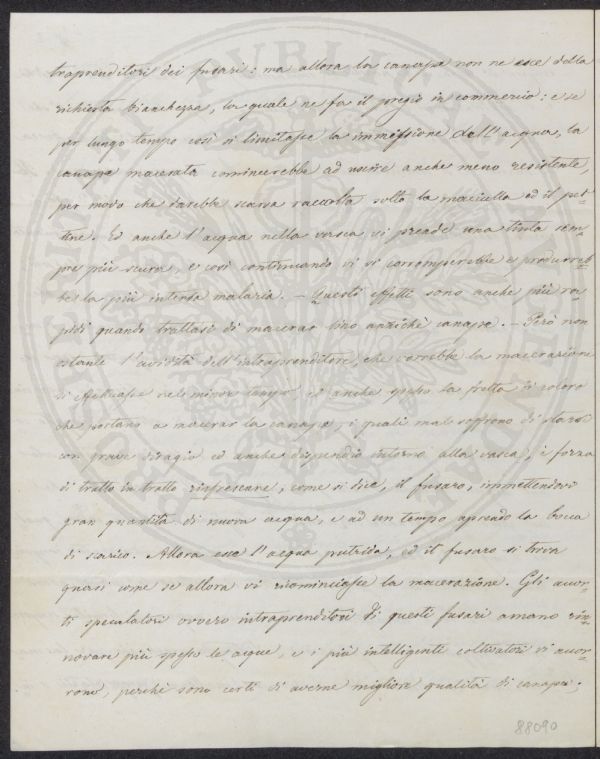 traprenditori dei fusari: ma allora la canapa non ne esce della
richiesta bianchezza, la quale ne fa il pregio in commercio: e se
per lungo tempo così si limitasse la immissione dell'acqua, la
canape macerata comincerebbe ad uscire anche meno resistente,
per modo che darebbe scarsa raccolta sotto la maciulla ed il pet-
tine. Ed anche l'acqua nella vasca vi prende una tinta sem-
pre più scura, e così continuando vi si corromperebbe e produrreb-
be la più intensa malaria. – Questi effetti sono anche più ra-
pidi quando trattasi di macerar lino anzichè canape. – Però non
ostante l'avidità dell'intraprenditore, che vorrebbe la macerazione
si effettuasse nel minor tempo, ed anche spesso la fretta di coloro
che portano a macerar la canapa, i quali male soffrono di starsi
con grave disagio ed anche dispendio intorno alla vasca, è forza
di tratto in tratto rinfrescare, come si dice, il fusaro, immettendovi
gran quantità di nuova acqua, e ad un tempo aprendo la bocca
di scarico. Allora esce l'acqua putrida, ed il fusaro si trova
quasi come se allora vi ricominciasse la macerazione. Gli accor-
ti speculatori ovvero intraprenditori di questi fusari amano rin-
novare più spesso le acque, e i più intelligenti coltivatori vi accor-
rono, perchè sono certi di averne migliore qualità di canapa;
88090
PVBLICAE